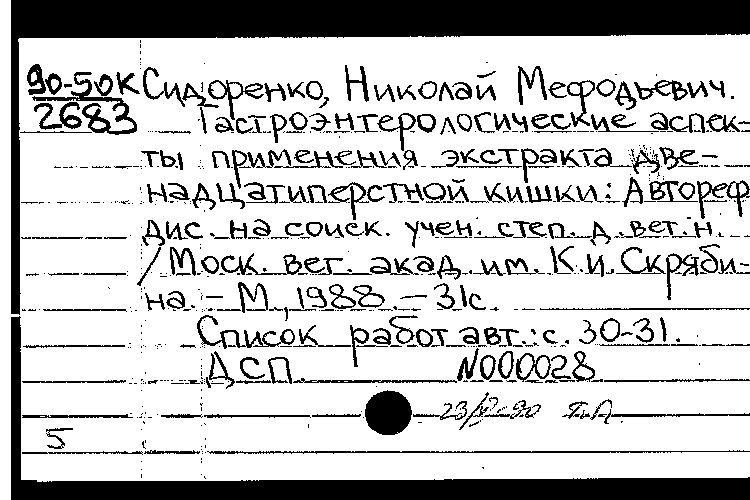 90-50К Сидоренко, Николай Мефодьевич.
2683 Гастроэнтерологические аспек-
ты применения экстракта две-
надцатиперстной кишки: Автореф
дис. на соиск. учен. степ. д. вет. н.
/Моск. вет. акад. им. К.И. Скряби-
на. – М., 1988. – 31с.
Список работ авт.: с. 30-31.
ДСП. N000028
5